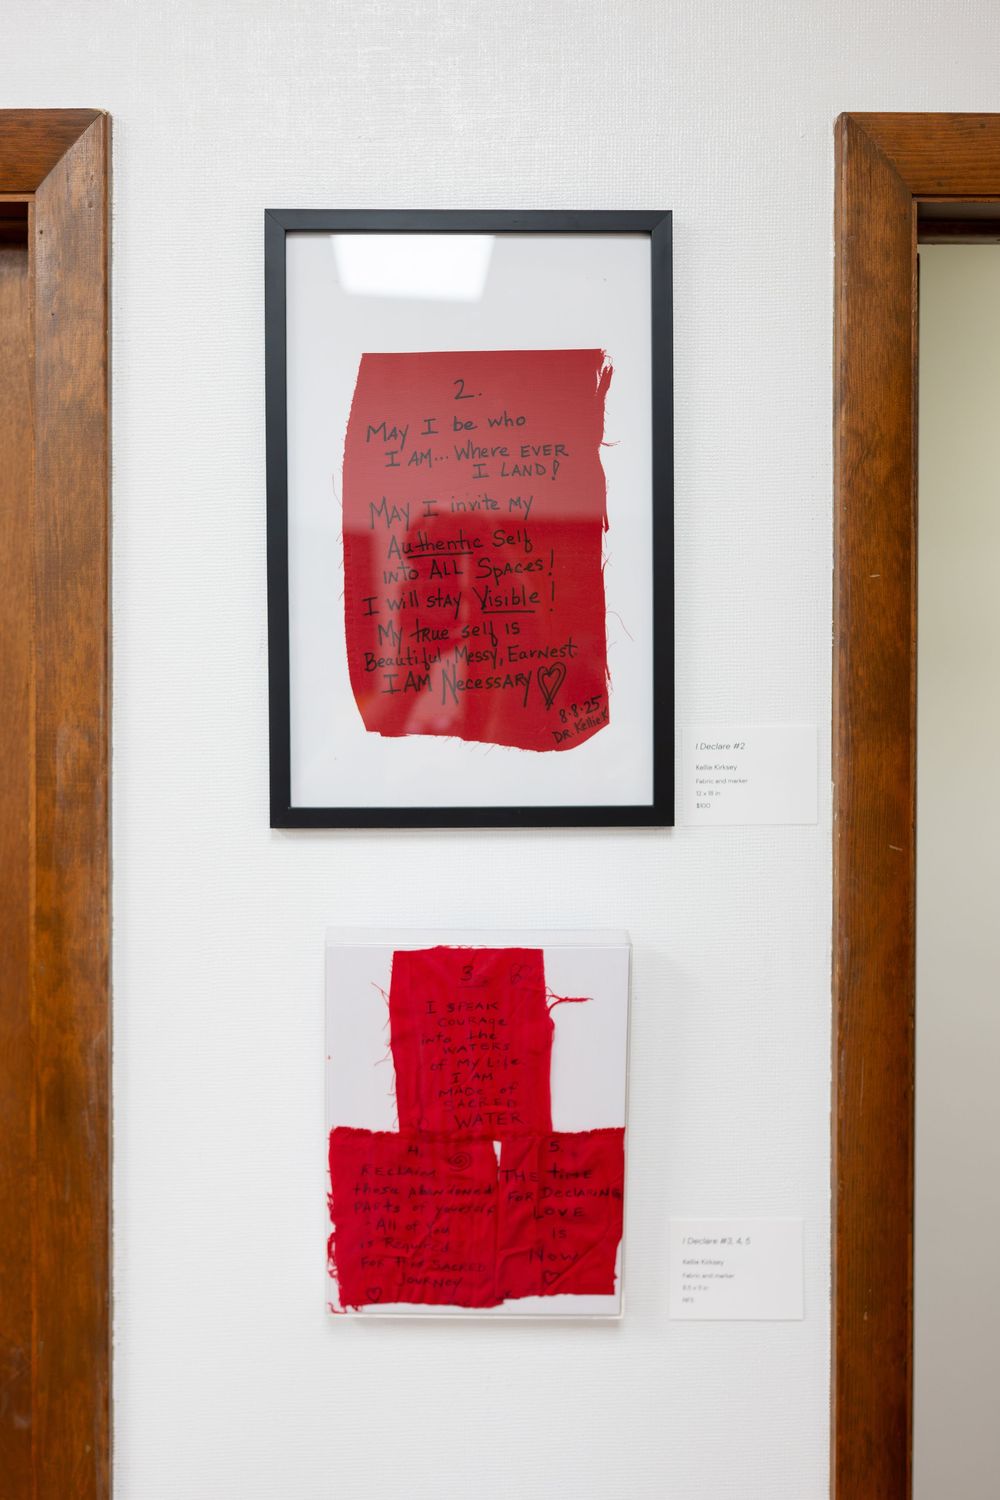 2.
MAY I be who
I AM... Where EVER
I LAND!
MAY I invite My
Authentic Self
into ALL Spaces!
I will stay Visible!
My true self is
Beautiful, Messy, Earnest
I AM Necessary
8.8.25
DR. Kellie K
I Declare #2
Kellie Kirksey
Fabric and marker
12 x 18 in
$100
3.
I SPEAK
COURAGE
into the
WATERS
of My Life
I AM
MADE of
SACRED
WATER
4.
RECLAIM
those abandoned
PARts of yourself
All of You
is Required
FOR this SACRED
JOURNEY
5.
THE time
FOR Declaring
LOVE
is
Now
I Declare #3, 4, 5
Kellie Kirksey
Fabric and marker
NFS